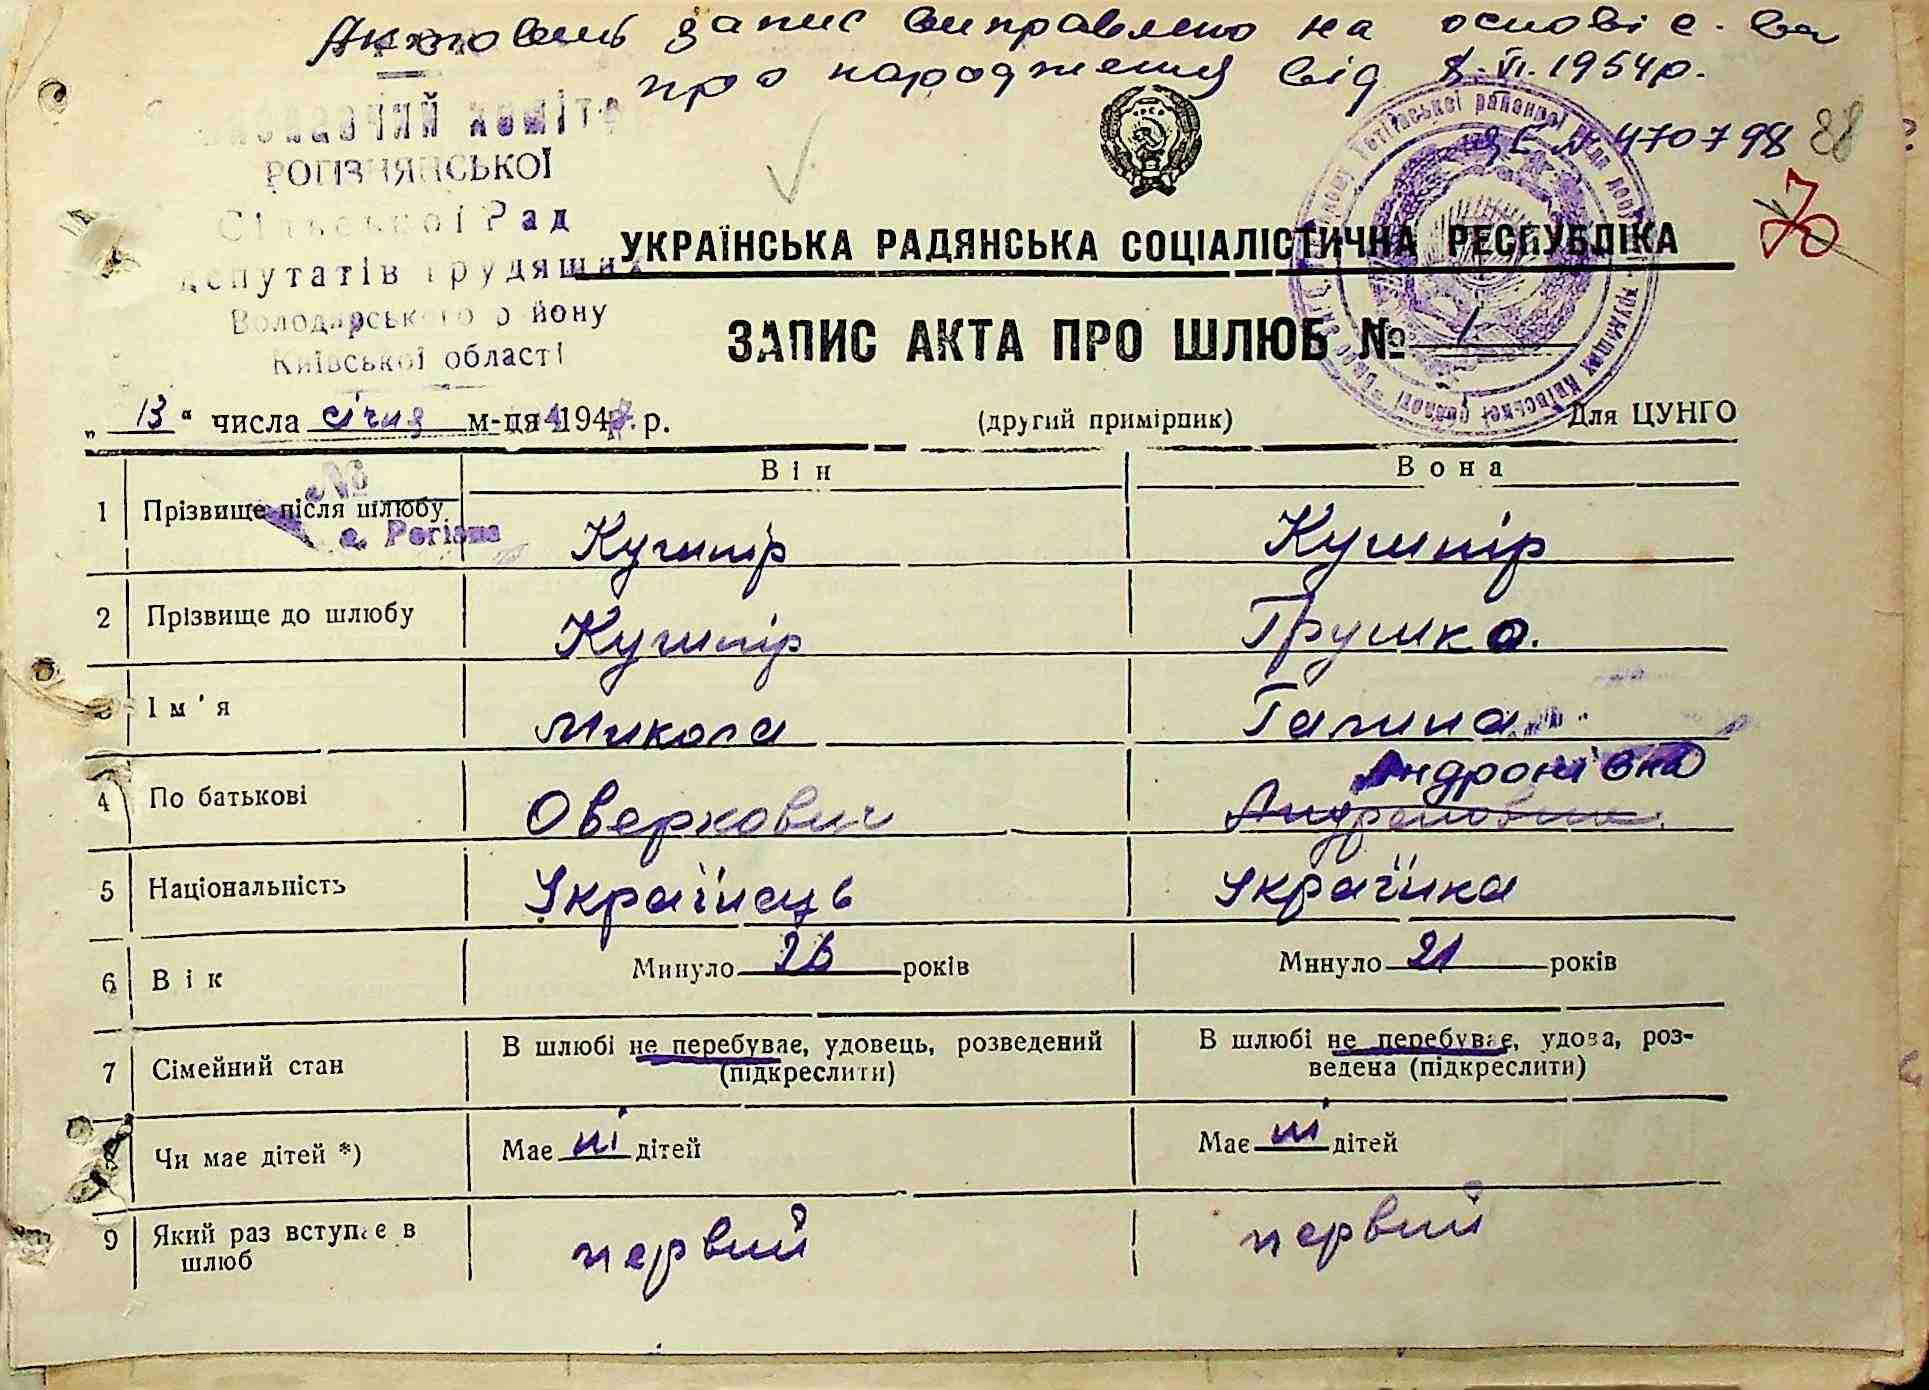 Актовий запис виправлено на основі с-ва
про народження від 8.VI.1954р.
№ 470798 88
комітет
РОГІЗНЯНСЬКОЇ
Сільської Рад
депутатів трудящих
Володарського району
Київської області
УКРАЇНСЬКА РАДЯНСЬКА СОЦІАЛІСТИЧНА РЕСПУБЛІКА
ЗАПИС АКТА ПРО ШЛЮБ № 1
„ 13 “ числа січня м-ця 1947 р. (другий примірник) Для ЦУНГО
№
с. Рогізна
Він Вона
1 Прізвище після шлюбу Кушнір Кушнір
2 Прізвище до шлюбу Кушнір Грушко.
3 Ім'я Микола Галина
Андронівна
4 По батькові Оверкович
5 Національність Українець Українка
6 Вік Минуло 26 років Минуло 21 років
7 Сімейний стан В шлюбі не перебуває, удовець, розведений (підкреслити) В шлюбі не перебуває, удова, роз-
ведена (підкреслити)
Чи має дітей *) Має ні дітей Має ні дітей
9 Який раз вступає в шлюб первий первий